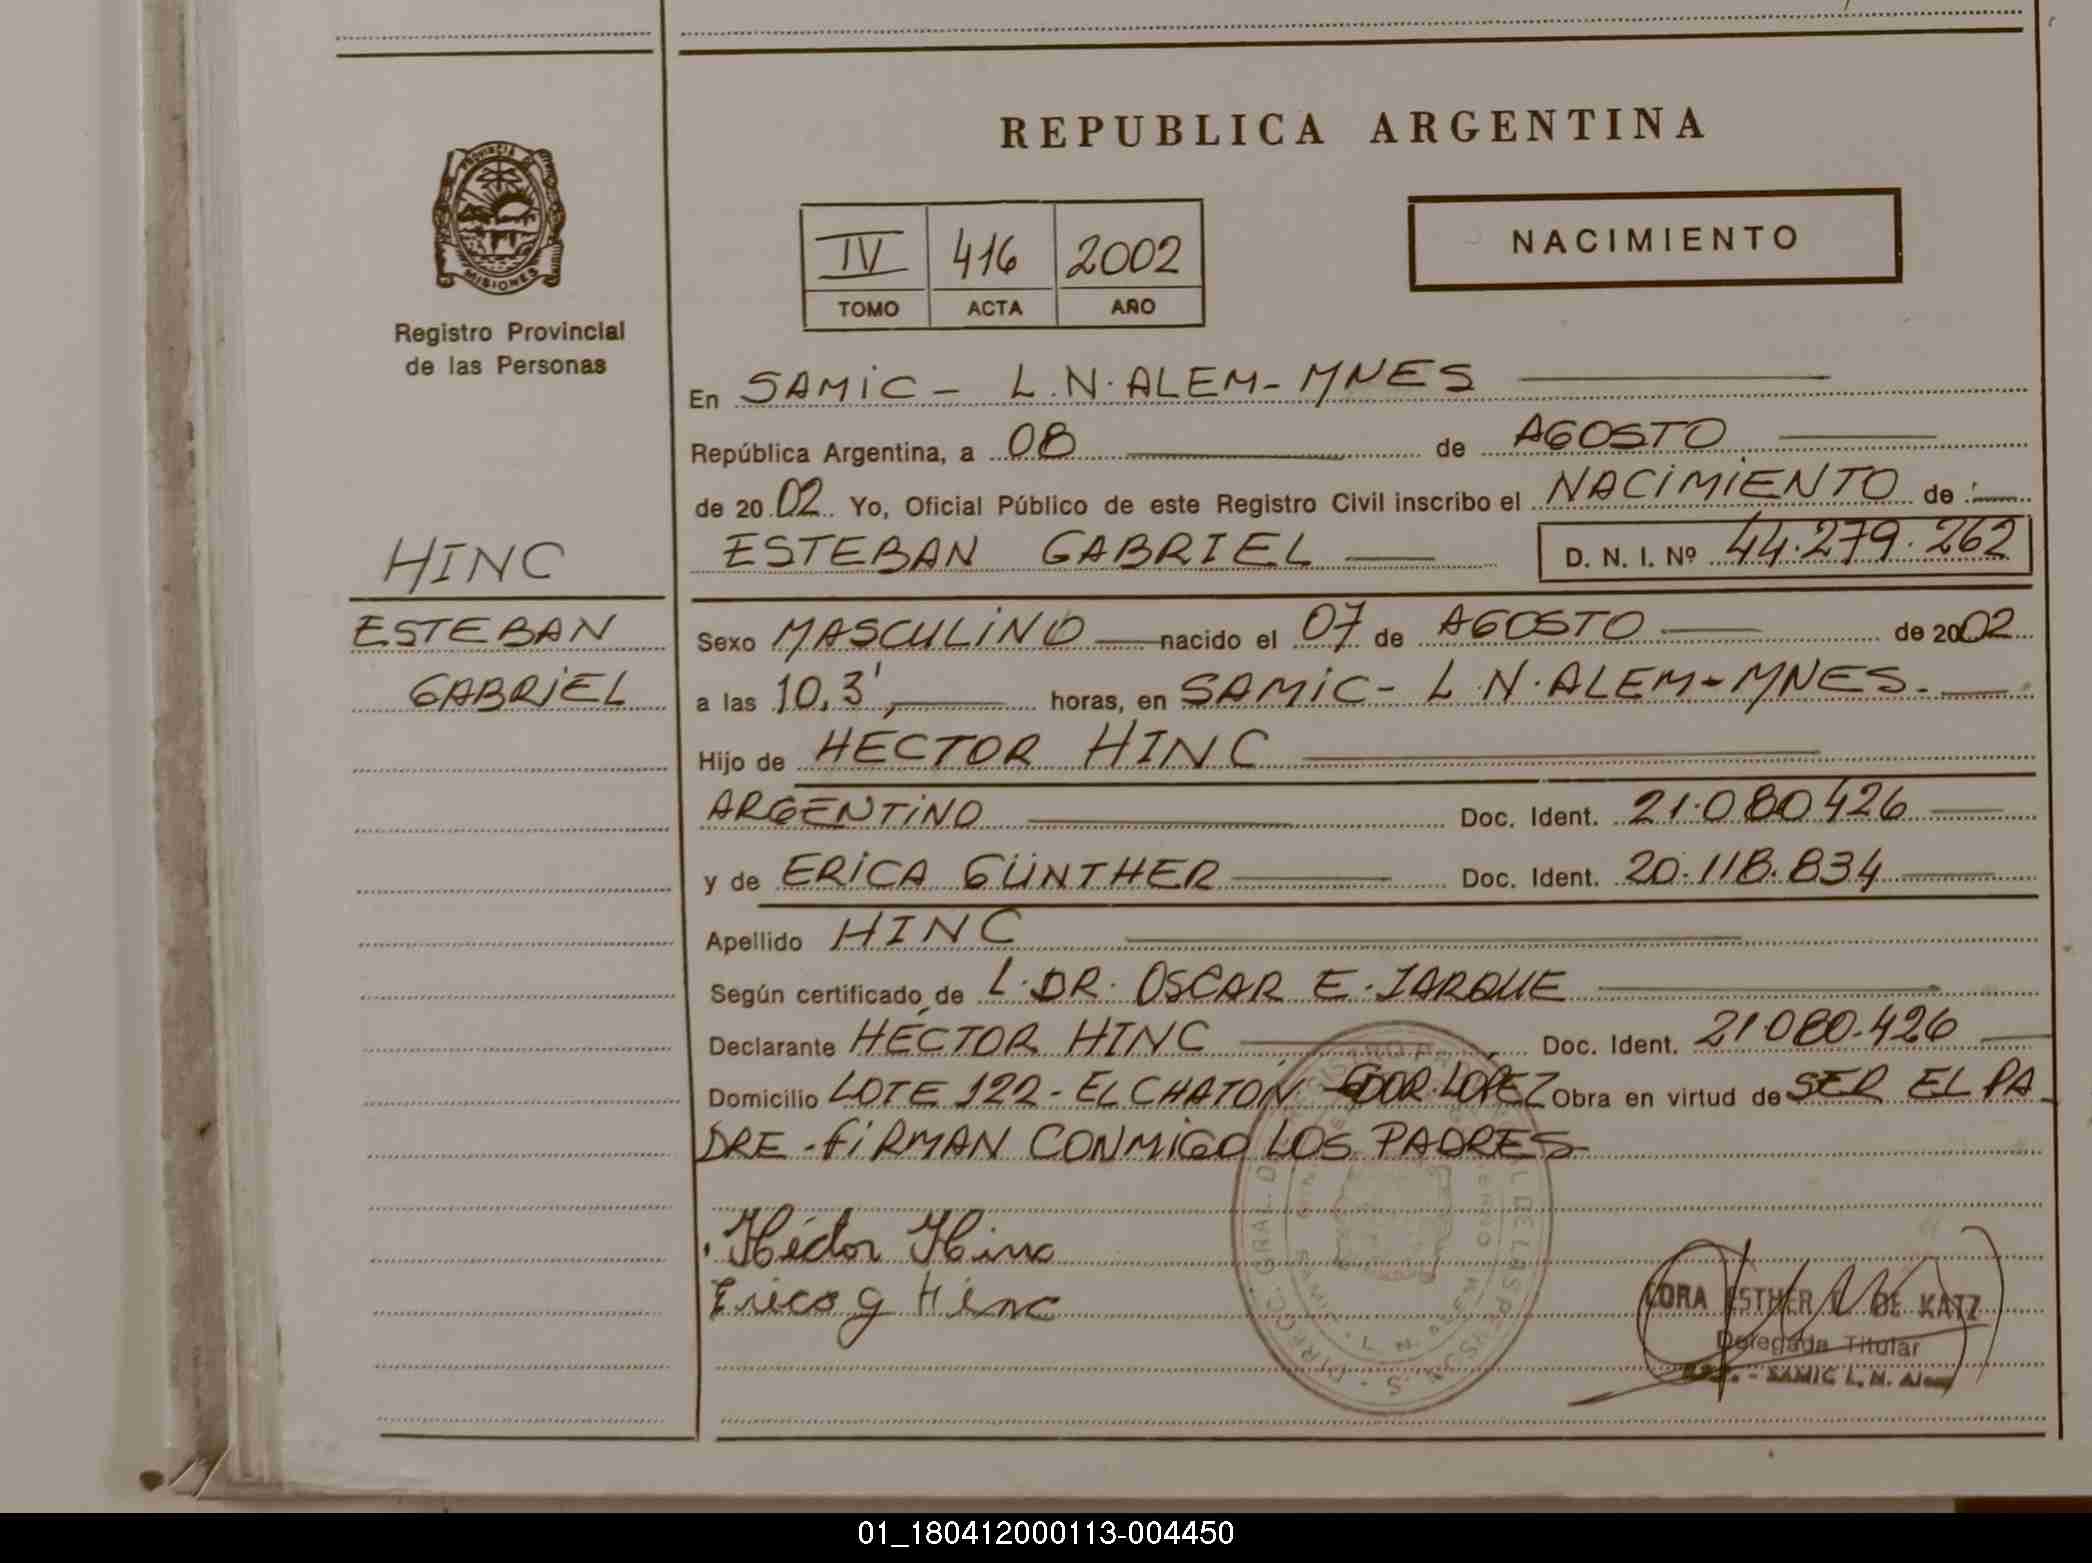 REPUBLICA ARGENTINA
PROVINCIA DE
MISIONES
Registro Provincial
de las Personas
IV 416 2002
TOMO ACTA AÑO
NACIMIENTO
En SAMIC - L.N. ALEM - MNES
República Argentina, a 08 de AGOSTO
de 2002 Yo, Oficial Público de este Registro Civil inscribo el NACIMIENTO de
ESTEBAN GABRIEL D. N. I. Nº 44.279.262
HINC
ESTEBAN
GABRIEL
Sexo MASCULINO nacido el 07 de AGOSTO de 2002
a las 10,3' horas, en SAMIC - L.N. ALEM - MNES.
Hijo de HECTOR HINC
ARGENTINO Doc. Ident. 21.080.426
y de ERICA GÜNTHER Doc. Ident. 20.118.834
Apellido HINC
Según certificado de L. DR. OSCAR E. JARQUE
Declarante HECTOR HINC Doc. Ident. 21.080.426
Domicilio LOTE 122 - EL CHATÓN GDOR. LOPEZ Obra en virtud de SER EL PA
DRE - FIRMAN CONMIGO LOS PADRES
Héctor Hinc
Erica G Hinc
ESTHER DE KATZ
Delegada Titular
SAMIC L. N. Alem
01_180412000113-004450